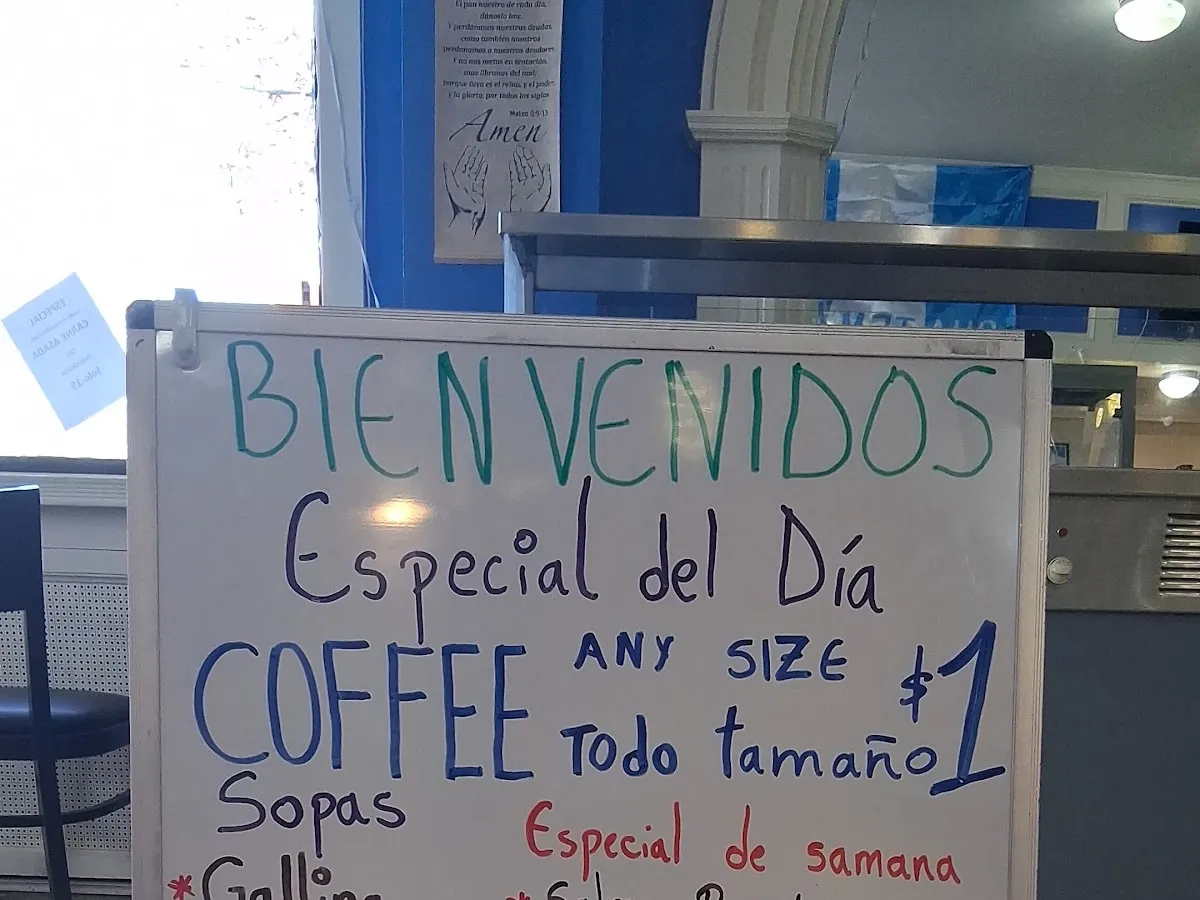 El pan nuestro de cada día,
dánoslo hoy.
Y perdónanos nuestras deudas,
como también nosotros
perdonamos a nuestros deudores
Y no nos metas en tentación,
mas líbranos del mal;
porque tuyo es el reino, y el poder,
y la gloria, por todos los siglos
Mateo 6:9-13
Amen
ESPECIAL
CARNE ASADA
Solo 15
BIENVENIDOS
Especial del Día
COFFEE ANY SIZE $1
Todo tamaño
Sopas
Especial de samana
*Gallina